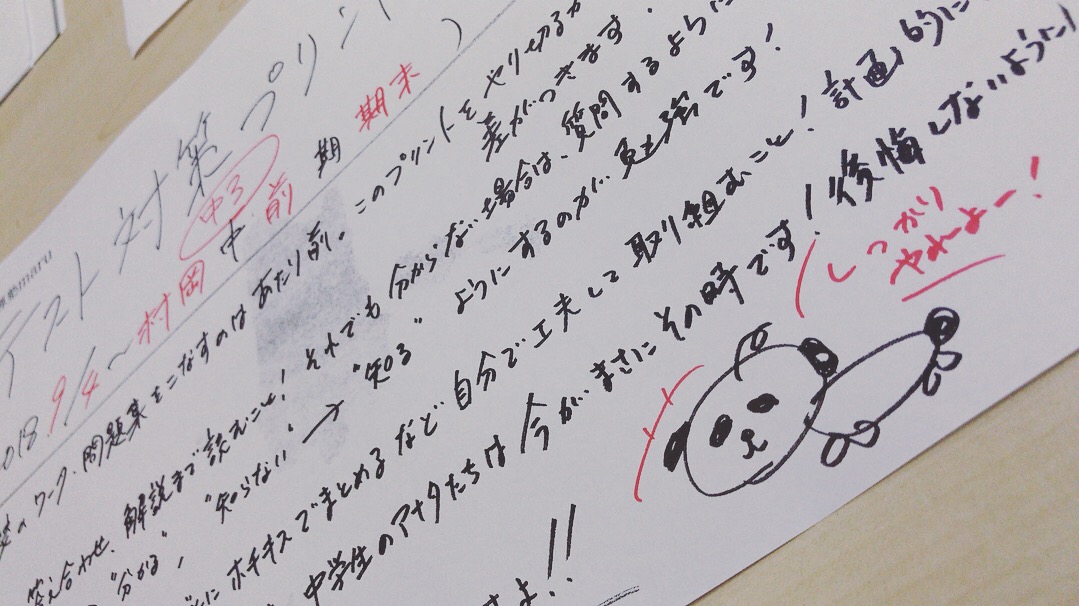 テスト対策プリント
2018.9/4～村岡中 前期 期末
中3
ワーク・問題集をこなすのはあたり前。このプリントをやり切るか
差がつきます。
答え合わせ、解説まで読むこと！それでも分からない場合は、質問するように
"分かる"、"知らない"→"知る"ようにするのが勉強です！
ホチキスでまとめるなど自分で工夫して取り組むこと！計画的に
中学生のアナタたちは今がまさにその時です！後悔しないように！
よ!!
しっかり
やれよー！